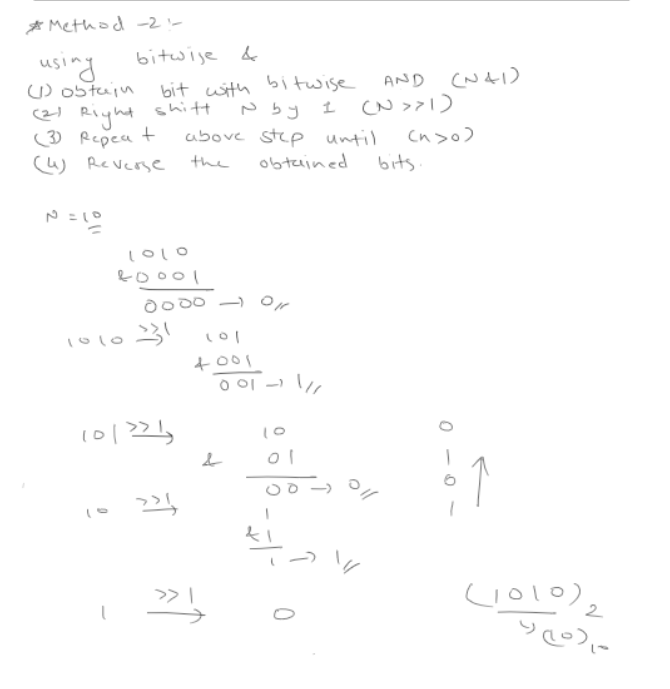 * Method -2 :-
using bitwise &
(1) obtain bit with bitwise AND (N&1)
(2) Right shift N by 1 (N >>1)
(3) Repeat above step until (n>0)
(4) Reverse the obtained bits.
N = 10
1010
&0001
0000 → 0//
1010 >>1 → 101
& 001
001 → 1//
101 >>1 → 10
& 01
00 → 0//
10 >>1 → 1
&1
1 → 1//
1 >>1 → 0
0
1
0
1
↑
(1010)2
↳ (10)10